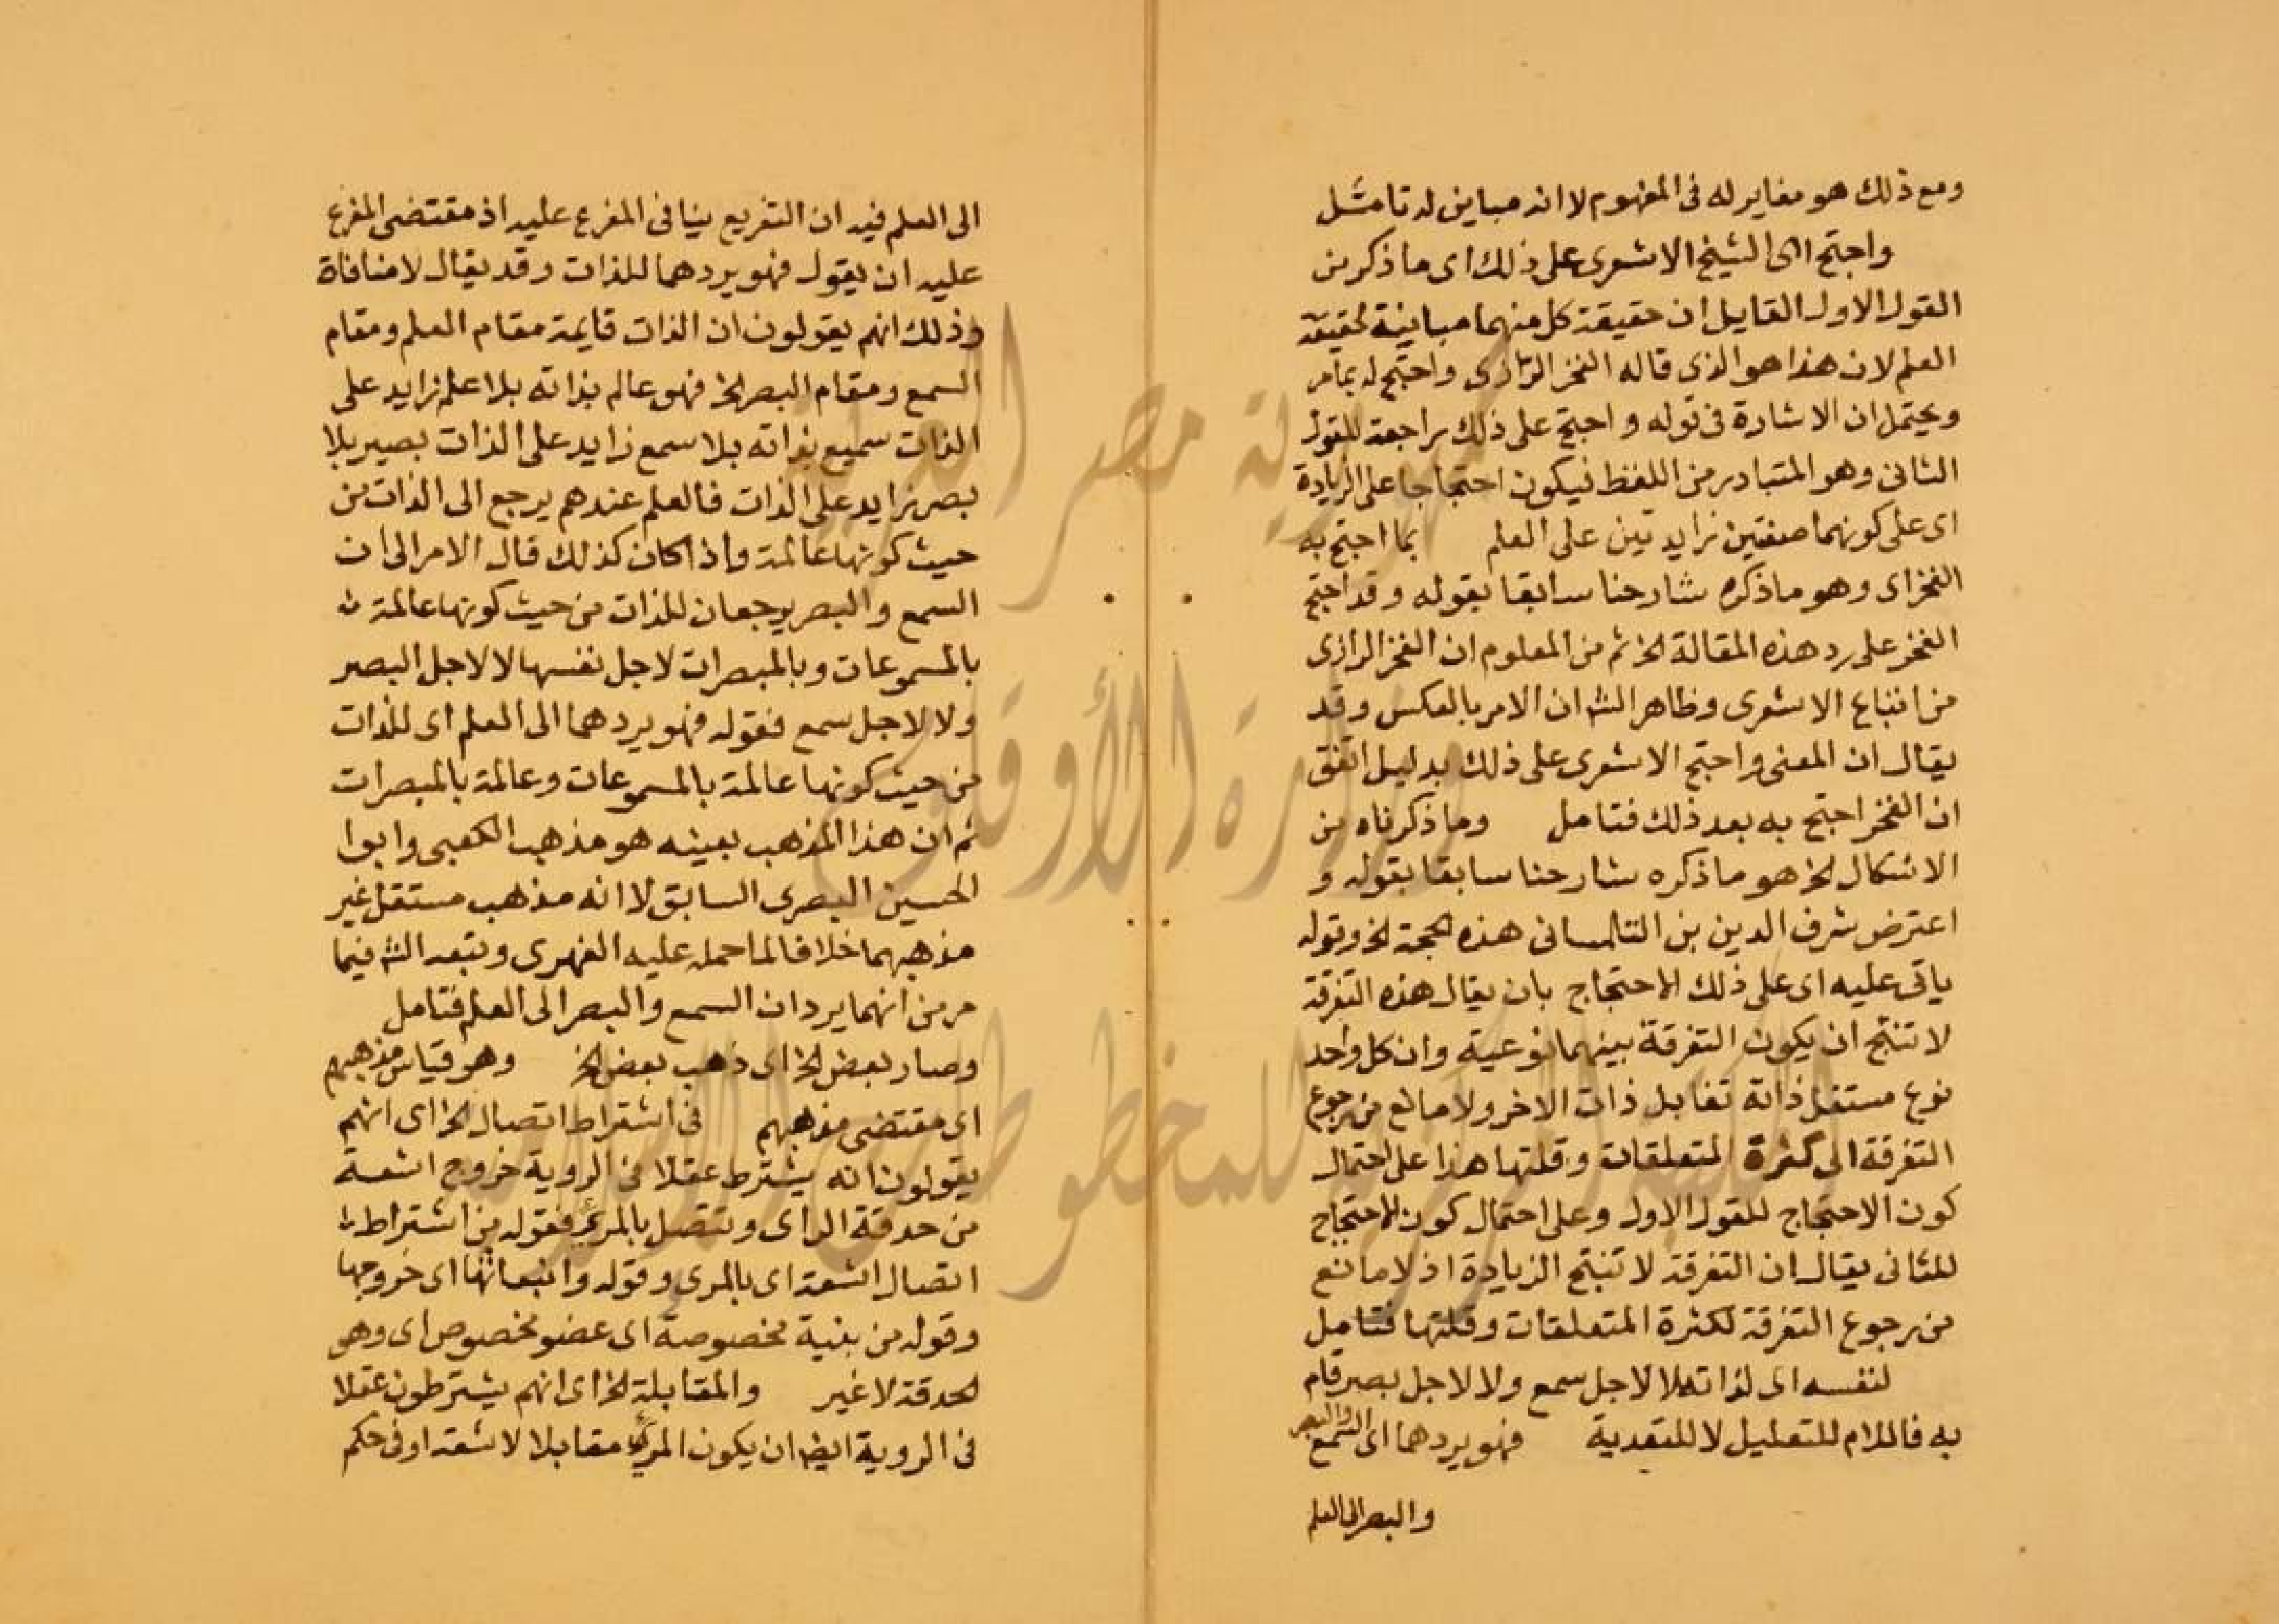 ومع ذلك هو مغاير له فى المفهوم لا انه مباين له تامل
واحتج اى الشيخ الاشعرى على ذلك اى ما ذكر من
القول الاول القايل ان حقيقة كل منهما مباينة لحقيقة
العلم لان هذا هو الذى قاله الفخر الرازى واحتج له بما مر
ويحتمل ان الاشارة فى قوله واحتج على ذلك راجعة للقول
الثانى وهو المتبادر من اللفظ فيكون احتجاجا على الزيادة
اى على كونهما صفتين زايدتين على العلم بما احتج به
الفخر اى وهو ما ذكره شارحنا سابقا بقوله وقد احتج
الفخر على رد هذه المقالة الخ ثم من المعلوم ان الفخر الرازى
من اتباع الاشعرى وظاهر الش ان الامر بالعكس وقد
يقال ان المعنى واحتج الاشعرى على ذلك بدليل اتفق
ان الفخر احتج به بعد ذلك فتامل وما ذكرناه من
الاشكال الخ هو ما ذكره شارحنا سابقا بقوله و
اعترض شرف الدين بن التلمسانى هذه الحجة الخ وقوله
ياتى عليه اى على ذلك الاحتجاج بان يقال هذه التفرقة
لا تنتج ان يكون التفرقة بينهما نوعية وان كل واحد
نوع مستقل ذاته تقابل ذات الاخر ولا مانع من رجوع
التفرقة الى كثرة المتعلقات وقلتها هذا على احتمال
كون الاحتجاج للقول الاول وعلى احتمال كون الاحتجاج
للثانى يقال ان التفرقة لا تنتج الزيادة اذ لا مانع
من رجوع التفرقة لكثرة المتعلقات وقلتها فتامل
لنفسه اى لذاته لا لاجل سمع ولا لاجل بصر قام
به فاللام للتعليل لا للتعدية فهو يردهما اى السمع والبصر
والبصر الى العلم
الى العلم فيه ان التفريع ينافى المفرع عليه اذ مقتضى المفرع
عليه ان يقول فهو يردهما للذات وقد يقال لا منافاة
وذلك انهم يقولون ان الذات قايمة مقام العلم ومقام
السمع ومقام البصر الخ فهو عالم بذاته بلا علم زايد على
الذات سميع بذاته بلا سمع زايد على الذات بصير بلا
بصر زايد على الذات فالعلم عندهم يرجع الى الذات من
حيث كونها عالمة واذا كان كذلك قال الامر الى ان
السمع والبصر يرجعان للذات من حيث كونها عالمة
بالمسموعات وبالمبصرات لاجل نفسها لا لاجل البصر
ولا لاجل سمع فقوله فهو يردهما الى العلم اى للذات
من حيث كونها عالمة بالمسموعات وعالمة بالمبصرات
ثم ان هذا المذهب بعينه هو مذهب الكعبى وابوا
الحسين البصرى السابق لا انه مذهب مستقل غير
مذهبهما خلافا لما حمله عليه الفهرى وتبعه الش فيما
مر من انهما يردان السمع والبصر الى العلم فتامل
وصار بعض الخ اى ذهب بعض الخ وهو قياس مذهبهم
اى مقتضى مذهبهم فى اشتراط اتصال الخ اى انهم
يقولون انه يشترط عقلا فى الروية خروج اشعة
من حدقة الراى وتتصل بالمرئ فقوله من اشتراط
اتصال اشعة اى بالمرى وقوله وانبعاثها اى خروجها
وقوله من بنية مخصوصة اى عضو مخصوص اى وهو
الحدقة لا غير والمقابلة الخ اى انهم يشترطون عقلا
فى الروية ايضا ان يكون المرئ مقابلا لاشعة او فى حكم
جمهورية مصر العربية
وزارة الأوقاف
المكتبة المركزية للمخطوطات الإسلامية